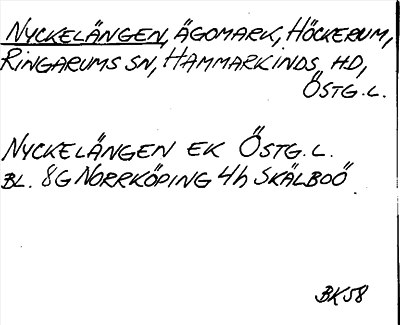 NYCKELÄNGEN, ÄGOMARK, HÖCKERUM,
RINGARUMS SN, HAMMARKINDS HD,
ÖSTG. L.
NYCKELÄNGEN EK ÖSTG. L.
BL. 8G NORRKÖPING 4h SKÄLBOÖ
BK58